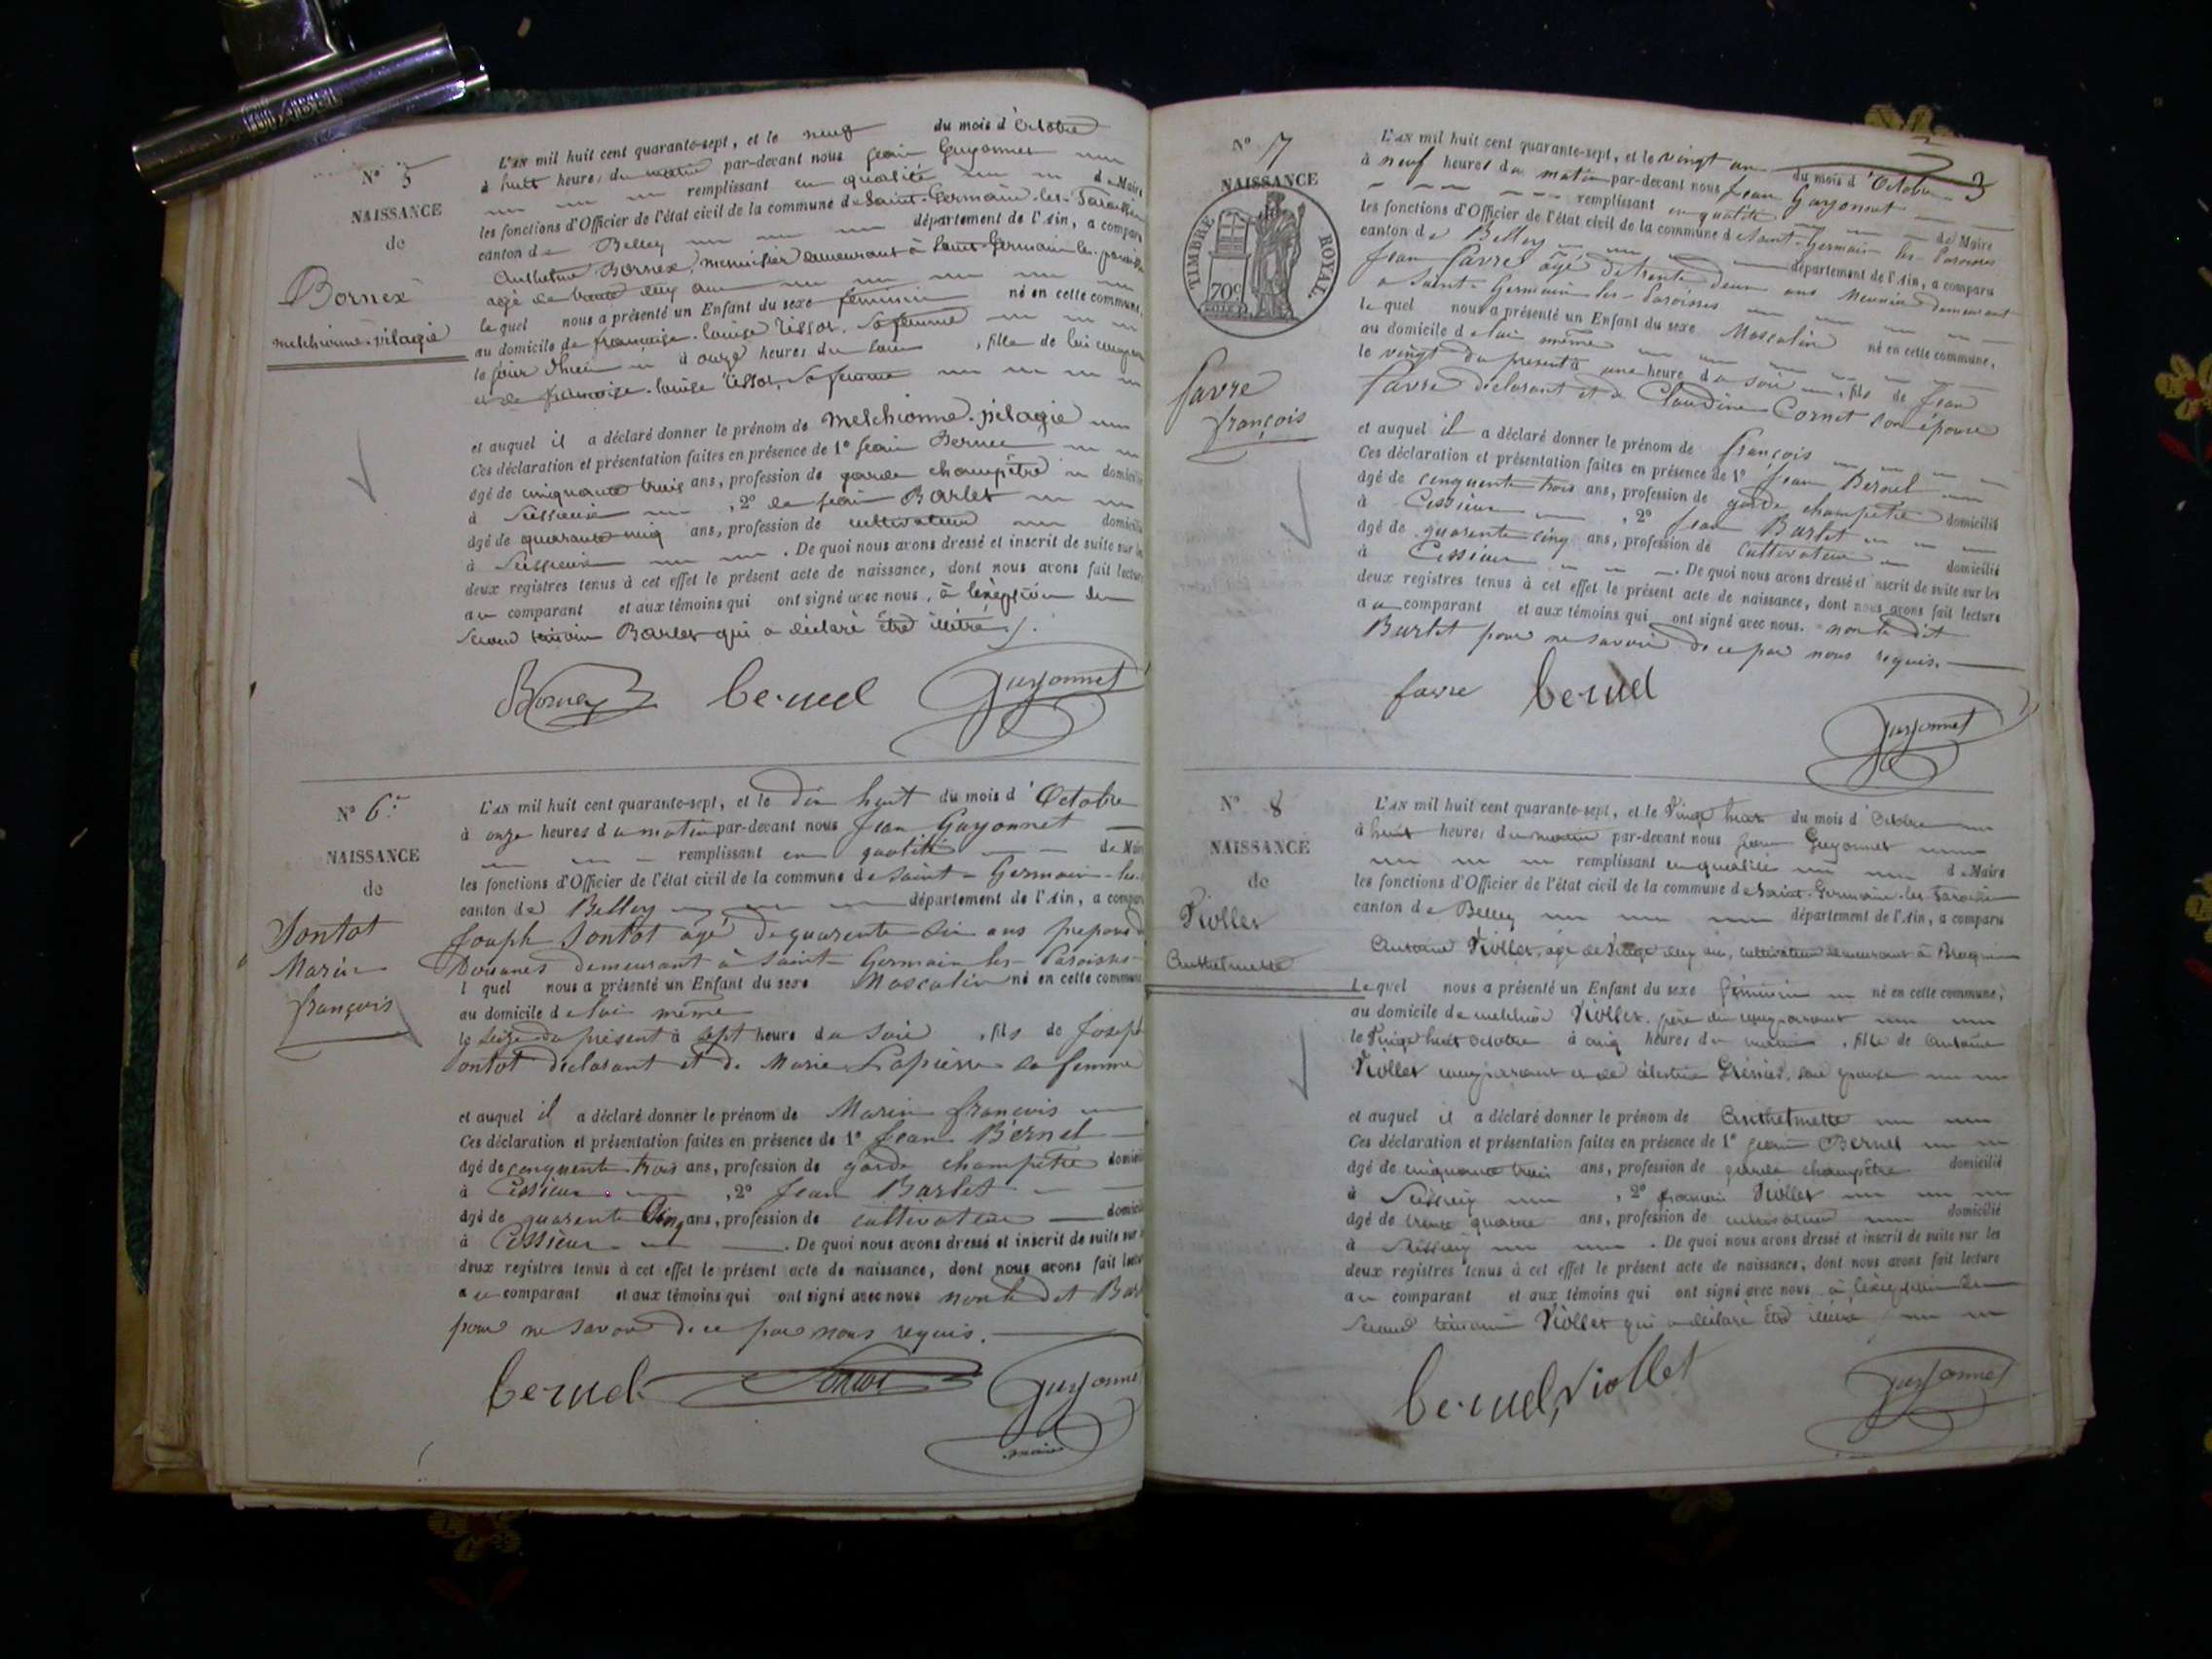 N° 5
NAISSANCE
de
Bornex
melchionne-pélagie
L'AN mil huit cent quarante-sept, et le neuf du mois d'Octobre
à huit heures du matin par-devant nous jean Guyonnet
remplissant en qualité de Maire
les fonctions d'Officier de l'état civil de la commune de Saint-Germain-les-Paroisses
canton de Belley département de l'Ain, a comparu
Anthelme Bornex, menuisier demeurant à Saint-Germain-les-paroisses
agé de trente deux ans
lequel nous a présenté un Enfant du sexe féminin né en cette commune,
au domicile de françoise-louise Tissot, Sa femme
le jour d'hier à onze heures du soir, fille de lui comparant
et de françoise-louise Tissot, Sa femme
et auquel il a déclaré donner le prénom de Melchionne-pélagie
Ces déclaration et présentation faites en présence de 1° jean Bernel
âgé de cinquante trois ans, profession de garde champêtre domicilié
à , 2° de jean Barlet
âgé de quarante cinq ans, profession de cultivateur domicilié
à . De quoi nous avons dressé et inscrit de suite sur les
deux registres tenus à cet effet le présent acte de naissance, dont nous avons fait lecture
au comparant et aux témoins qui ont signé avec nous, à l'exception du
second témoin Barlet qui a déclaré être illétré
Bornex bernel Guyonnet
N° 6
NAISSANCE
de
Sontot
Marin
françois
L'AN mil huit cent quarante-sept, et le dix huit du mois d'Octobre
à onze heures du matin par-devant nous Jean Guyonnet
remplissant en qualité de Maire
les fonctions d'Officier de l'état civil de la commune de Saint-Germain-les-
canton de Belley département de l'Ain, a comparu
Joseph Sontot agé de quarente-Six ans preposé
Douanes demeurant à Saint-Germain les-Paroisses
l quel nous a présenté un Enfant du sexe Masculin né en cette commune
au domicile de lui même
le Seize du présent à sept heure du soir, fils de Joseph
Sontot déclarant et de Marie Lapierre sa femme
et auquel il a déclaré donner le prénom de Marin françois
Ces déclaration et présentation faites en présence de 1° Jean Bernel
âgé de cenquente-trois ans, profession de garde champêtre domicilié
à Cessieux, 2° Jean Barlet
âgé de quarente Cinq ans, profession de cultivateur domicilié
à Cessieux. De quoi nous avons dressé et inscrit de suite sur
deux registres tenus à cet effet le présent acte de naissance, dont nous avons fait lecture
au comparant et aux témoins qui ont signé avec nous non le dit Bar
pour ne savoir de ce par nous requis.
bernel Sontot Guyonnet
maire
3
N° 7
NAISSANCE
de
TIMBRE ROYAL.
70c
favre
françois
L'AN mil huit cent quarante-sept, et le vingt un du mois d'Octobre
à neuf heures du matin par-devant nous Jean Guyonnet
remplissant en qualité de Maire
les fonctions d'Officier de l'état civil de la commune de Saint-Germain-les-Paroisses
canton de Belley département de l'Ain, a comparu
Jean favre âgé de trente deux ans Meunier demeurant
a Saint-Germain les-Paroisses
lequel nous a présenté un Enfant du sexe Masculin né en cette commune,
au domicile de lui même
le vingt du present à une heure du soir, fils de Jean
favre déclarant et de Claudine Cornet son épouse
et auquel il a déclaré donner le prénom de françois
Ces déclaration et présentation faites en présence de 1° Jean Bernel
âgé de cenquente trois ans, profession de garde champêtre domicilié
à Cessieux, 2° Jean Barlet
âgé de quarente cinq ans, profession de cultivateur domicilié
à Cessieux. De quoi nous avons dressé et inscrit de suite sur les
deux registres tenus à cet effet le présent acte de naissance, dont nous avons fait lecture
au comparant et aux témoins qui ont signé avec nous. non le dit
Barlet pour ne savoir de ce par nous requis.
favre bernel
Guyonnet
N° 8
NAISSANCE
de
Viollet
Anthelmette
L'AN mil huit cent quarante-sept, et le Vingt huit du mois d'Octobre
à huit heures du matin par-devant nous jean Guyonnet
remplissant en qualité d Maire
les fonctions d'Officier de l'état civil de la commune de Saint-Germain-les-Paroisses
canton de Belley département de l'Ain, a comparu
Antoine Viollet, agé de vingt deux ans, cultivateur demeurant à
Lequel nous a présenté un Enfant du sexe féminin né en cette commune,
au domicile de melchior Viollet, père du comparant
le Vingt huit octobre à cinq heures du matin, fille de Antoine
Viollet comparant et de célestine son épouse
et auquel il a déclaré donner le prénom de Anthelmette
Ces déclaration et présentation faites en présence de 1° jean Bernel
âgé de cinquante trois ans, profession de garde champêtre domicilié
à , 2° françois Viollet
âgé de trente quatre ans, profession de cultivateur domicilié
à . De quoi nous avons dressé et inscrit de suite sur les
deux registres tenus à cet effet le présent acte de naissance, dont nous avons fait lecture
au comparant et aux témoins qui ont signé avec nous à l'exception du
second témoin Viollet qui a déclaré être illétré
bernel, Viollet Guyonnet